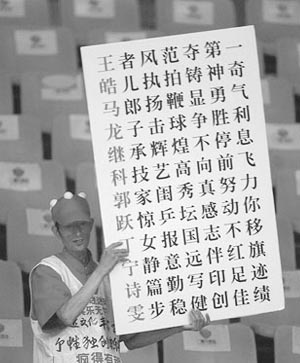 王者风范夺第一
皓儿执拍铸神奇
马郎扬鞭显勇气
龙子击球争胜利
继承辉煌不停息
科技艺高向前飞
郭家闺秀真努力
跃惊乒坛感动你
丁女报国志不移
宁静意远伴红旗
诗篇勤勉写足迹
雯步稳健创佳绩
文化
疯得有